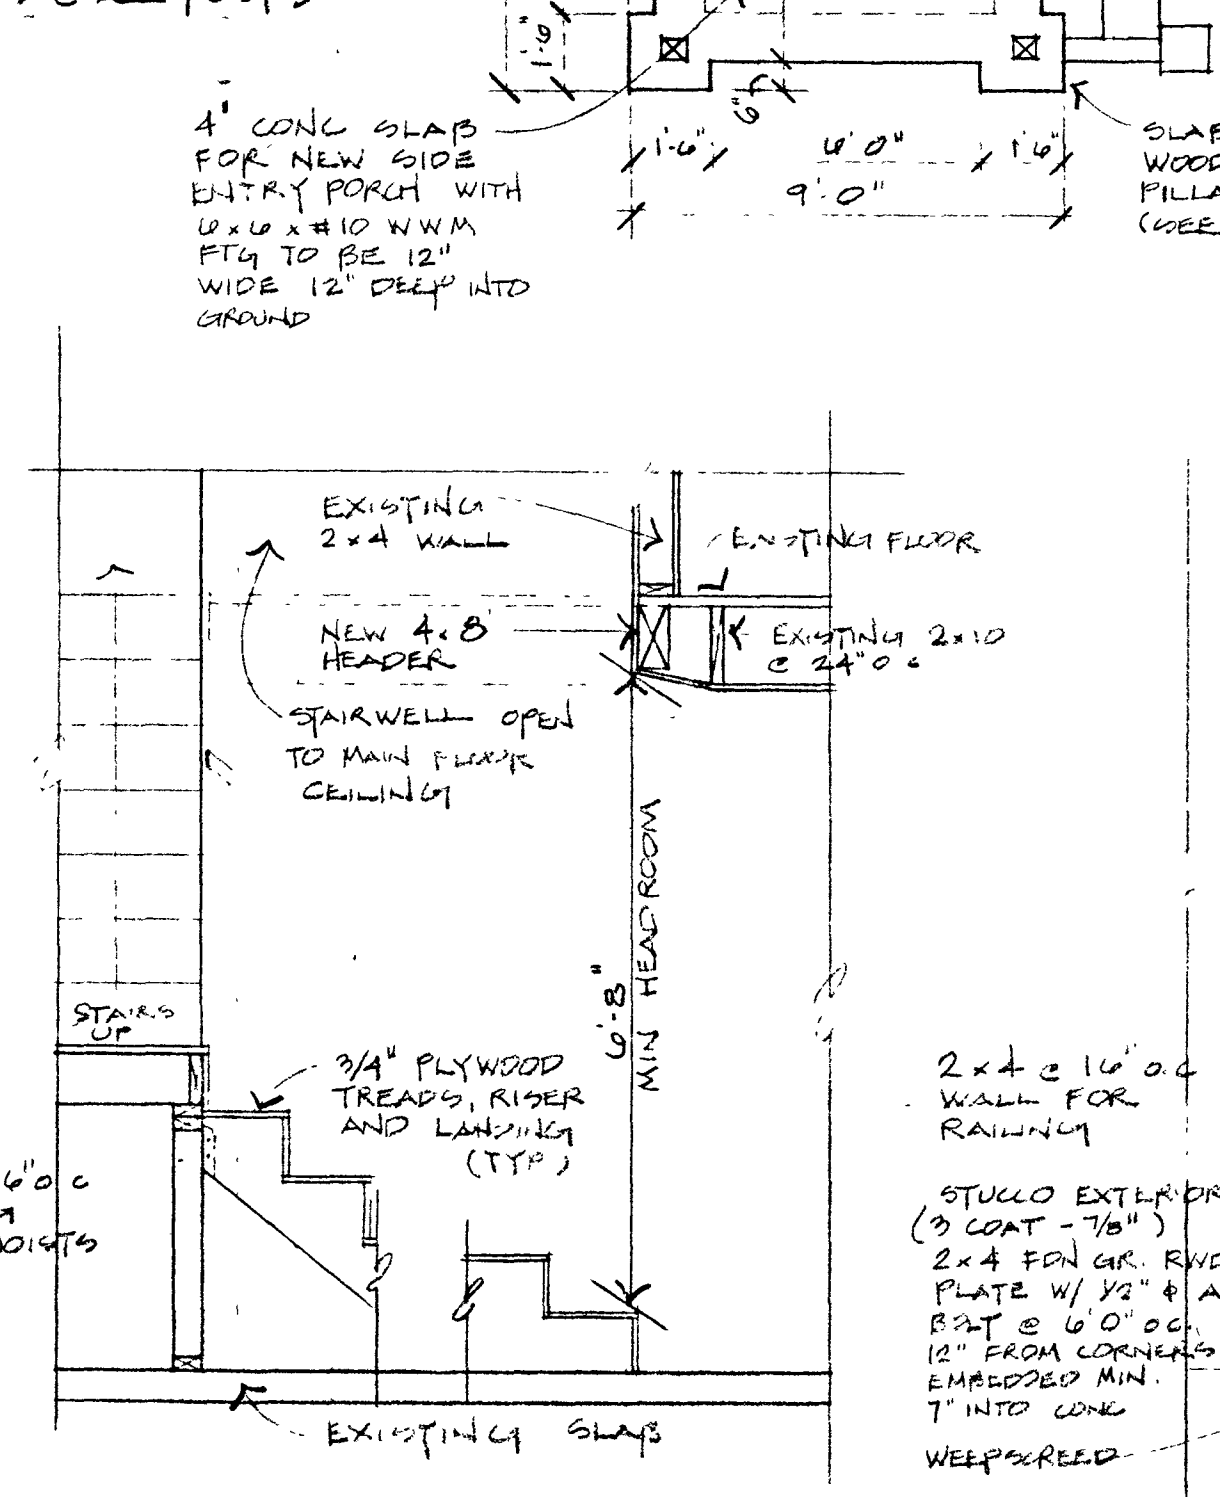 1'-6"
6"
4" CONC SLAB
FOR NEW SIDE
ENTRY PORCH WITH
6x6x#10 WWM
FTG TO BE 12"
WIDE 12" DEEP INTO
GROUND
1'-6" 6'0" 1'6"
9'-0"
SLAB
WOOD
PILLA
(SEE
EXISTING
2x4 WALL
EXISTING FLOOR
NEW 4x8
HEADER
EXISTING 2x10
@ 24" O C
STAIRWELL OPEN
TO MAIN FLOOR
CEILING
6'-8"
MIN HEADROOM
STAIRS
UP
3/4" PLYWOOD
TREADS, RISER
AND LANDING
(TYP)
6" O C
OISTS
EXISTING SLAB
2x4 @ 16" O.C
WALL FOR
RAILING
STUCCO EXTERIOR
(3 COAT - 7/8")
2x4 FDN GR. RWD
PLATE W/ 1/2" φ A
BOLT @ 6'0" OC.
12" FROM CORNERS
EMBEDDED MIN.
7" INTO CONC
WEEPSCREED